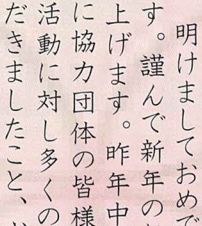 明けましておめで
す。謹んで新年の
上げます。昨年中
に協力団体の皆様
活動に対し多くの
だきましたこと、